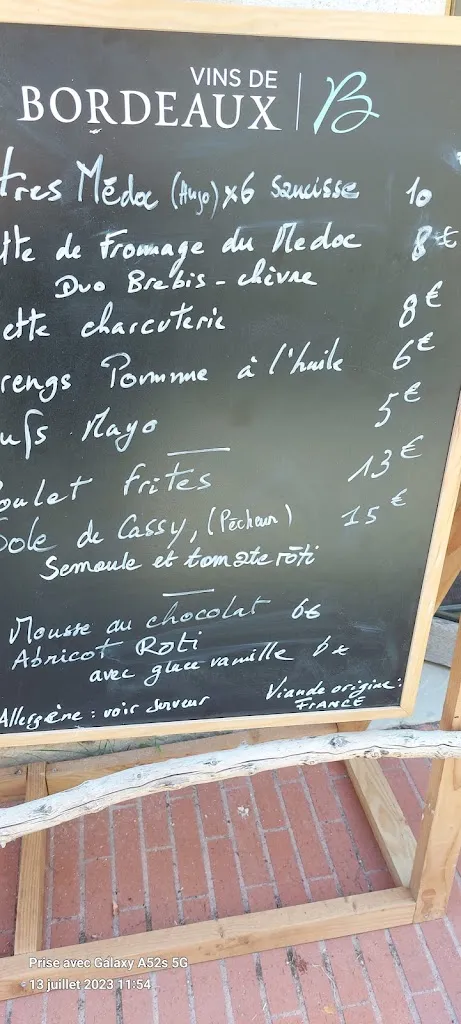 VINS DE
BORDEAUX B
tres Médoc (Anjo) x6 Saucisse 10
tte de Fromage du Medoc 8€
Duo Brebis - chèvre
ette charcuterie 8€
rengs Pomme à l'huile 6€
ufs Mayo 5€
oulet frites 13€
Sole de Cassy, (Pécheur) 15€
Semoule et tomate rôti
Mousse au chocolat 6€
Abricot Roti
avec glace vanille 6€
Allergène : voir serveur
Viande origine :
FRANCE
Prise avec Galaxy A52s 5G
13 juillet 2023 11:54